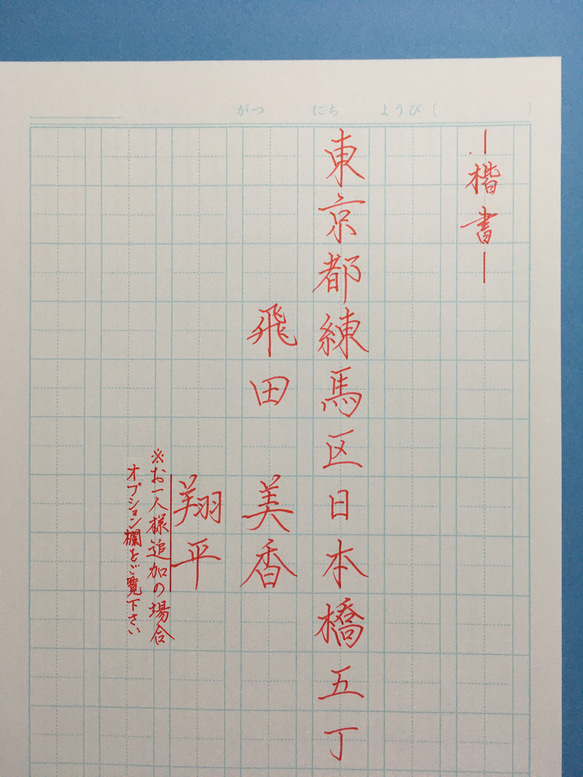 がつ にち ようび( )
ー楷書ー
東京都練馬区日本橋五丁
飛田 美香
翔平
※お一人様追加の場合
オプション欄をご覧下さい